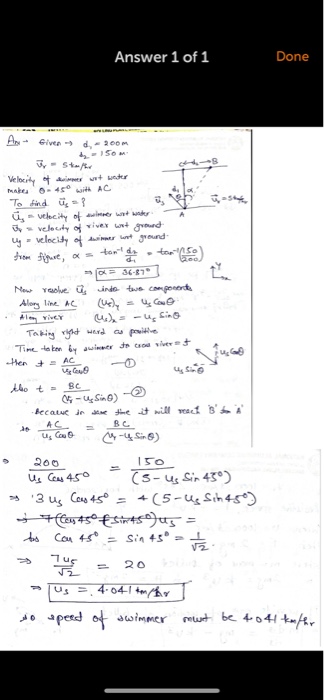 Answer 1 of 1
Done
Ans → Given → d₁ = 200m
d₂ = 150 m
v⃗ᵣ = 5 km/hr
Velocity of swimmer wrt water
makes θ = 45° with AC
To find u⃗ₛ = ?
u⃗ₛ = velocity of swimmer wrt water
v⃗ᵣ = velocity of river wrt ground
u⃗g = velocity of swimmer wrt ground
from figure, α = tan⁻¹ d₂/d₁ = tan⁻¹(150/200)
⇒ α = 36.87°
Now resolve u⃗ₛ into two components
Along line AC (uₛ)ᵧ = uₛ Cosθ
Along river (uₛ)ₓ = -uₛ Sinθ
Taking right ward as positive
Time taken by swimmer to cross river = t
then t = AC/uₛCosθ —①
Also t = BC/(vᵣ - uₛSinθ) —②
Because in same time it will reach 'B' from 'A'
so AC/uₛ Cosθ = BC/(vᵣ - uₛ Sinθ)
⇒ 200/uₛ Cos 45° = 150/(5 - uₛ Sin 45°)
⇒ 3 uₛ Cos 45° = 4 (5 - uₛ Sin 45°)
Cos 45° = Sin 45° = 1/√2
⇒ 7uₛ/√2 = 20
⇒ uₛ = 4.041 km/hr
so speed of swimmer must be 4.041 km/hr